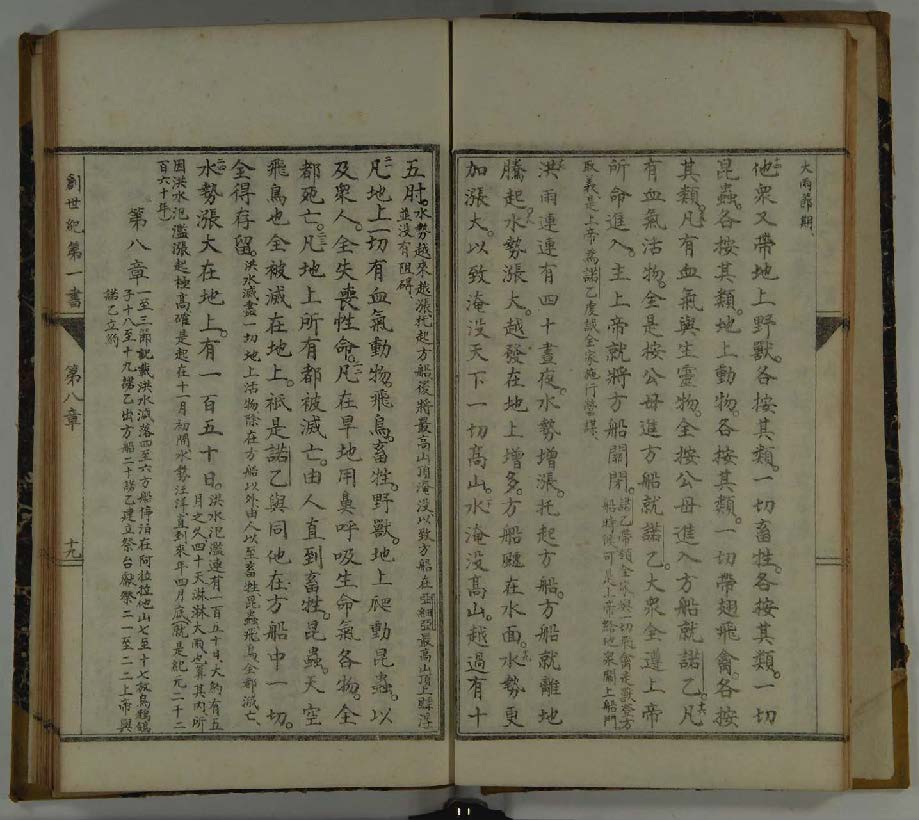 大雨節期、
他衆又帶地上野獸。各按其類。一切畜牲。各按其類。一切
昆蟲。各按其類。地上動物。各按其類。一切帶翅飛禽。各按
其類。凡有血氣與生靈物。全按公母進入方船就諾乙。凡
有血氣活物。全是按公母進方船就諾乙。大衆全遵上帝
所命進入。主上帝就將方船關閉。諾乙帶領全家與一切飛禽走獸登方
船時候可是上帝豁他衆關上船門
取義是上帝爲諾乙虔誠全家施行營謀、
洪雨連連有四十晝夜。水勢增漲。托起方船。方船就離地
騰起。水勢漲大。越發在地上增多。方船飃在水面。水勢更
加漲大。以致淹没天下一切高山。水淹没高山。越過有十
五肘。水勢越來越漲托起方船後將最高山頂淹没以致方船在亞細亞最高山頂上飃浮
並没有阻碍、
凡地上一切有血氣動物。飛鳥。畜牲。野獸。地上爬動昆蟲。以
及衆人。全失喪性命。凡在旱地用鼻呼吸生命氣各物。全
都死亡。凡地上所有都被滅亡。由人直到畜牲。昆蟲。天空
飛鳥也全被滅在地上。祇是諾乙與同他在方船中一切。
全得存留。洪水滅盡一切地上活物除在方船以外由人以至畜牲昆蟲飛鳥全都滅亡、
水勢漲大在地上。有一百五十日。洪水氾濫連有一百五十日大約有五
月之久四十天淋淋大雨也算其内所
因洪水氾濫漲起極高確是起在十一月初間水勢汪洋直到來年四月底就是紀元二十二
百六十年
第八章 一至三節記載洪水減落四至六方船停泊在阿拉拉他山七至十七放烏鴉鴿
子十八至十九諾乙出方船二十諾乙建立祭台獻祭二一至二二上帝與
諾乙立約
創世紀第一書 第八章 十九